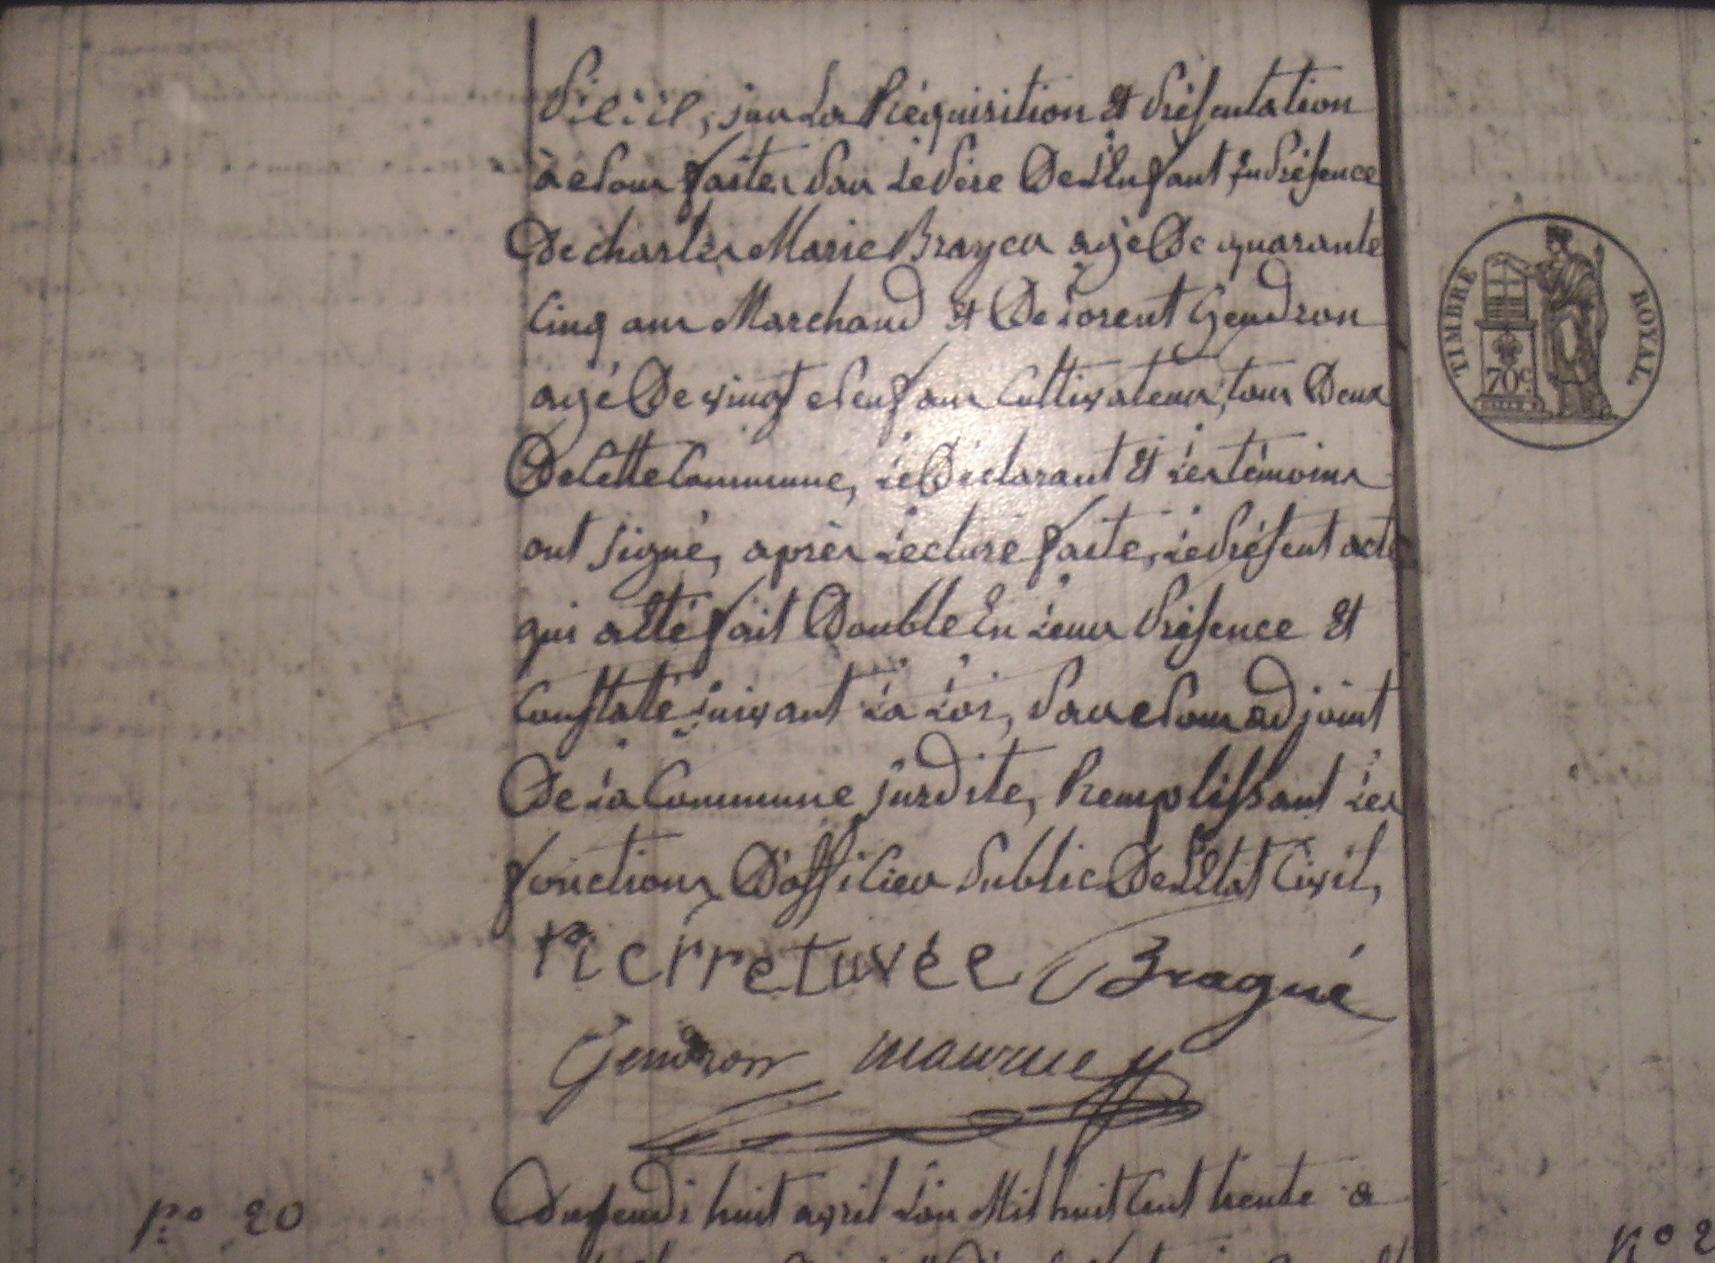 Civil, sur La Réquisition Et Présentation
à Nous faites Par Le Père De L'Enfant, En Présence
De charles Marie Brayer agé De quarante
Cinq ans Marchand Et De Lorent Gendron
agé De vingt Neuf ans Cultivateur, tous Deux
De Cette Commune, Le Déclarant Et Les témoins
ont signé, après Lecture faite, Le Présent acte
qui a Eté fait Double En Leur Présence Et
Constaté suivant La Loi, Par Nous adjoint
De La Commune susdite, Remplissant Les
fonctions D'officier Public De L'Etat Civil,
Pierre tuvée Bragué
Gendron
n° 20
Du jeudi huit avril L'an Mil huit Cent trente a
TIMBRE ROYAL
70c
n° 2